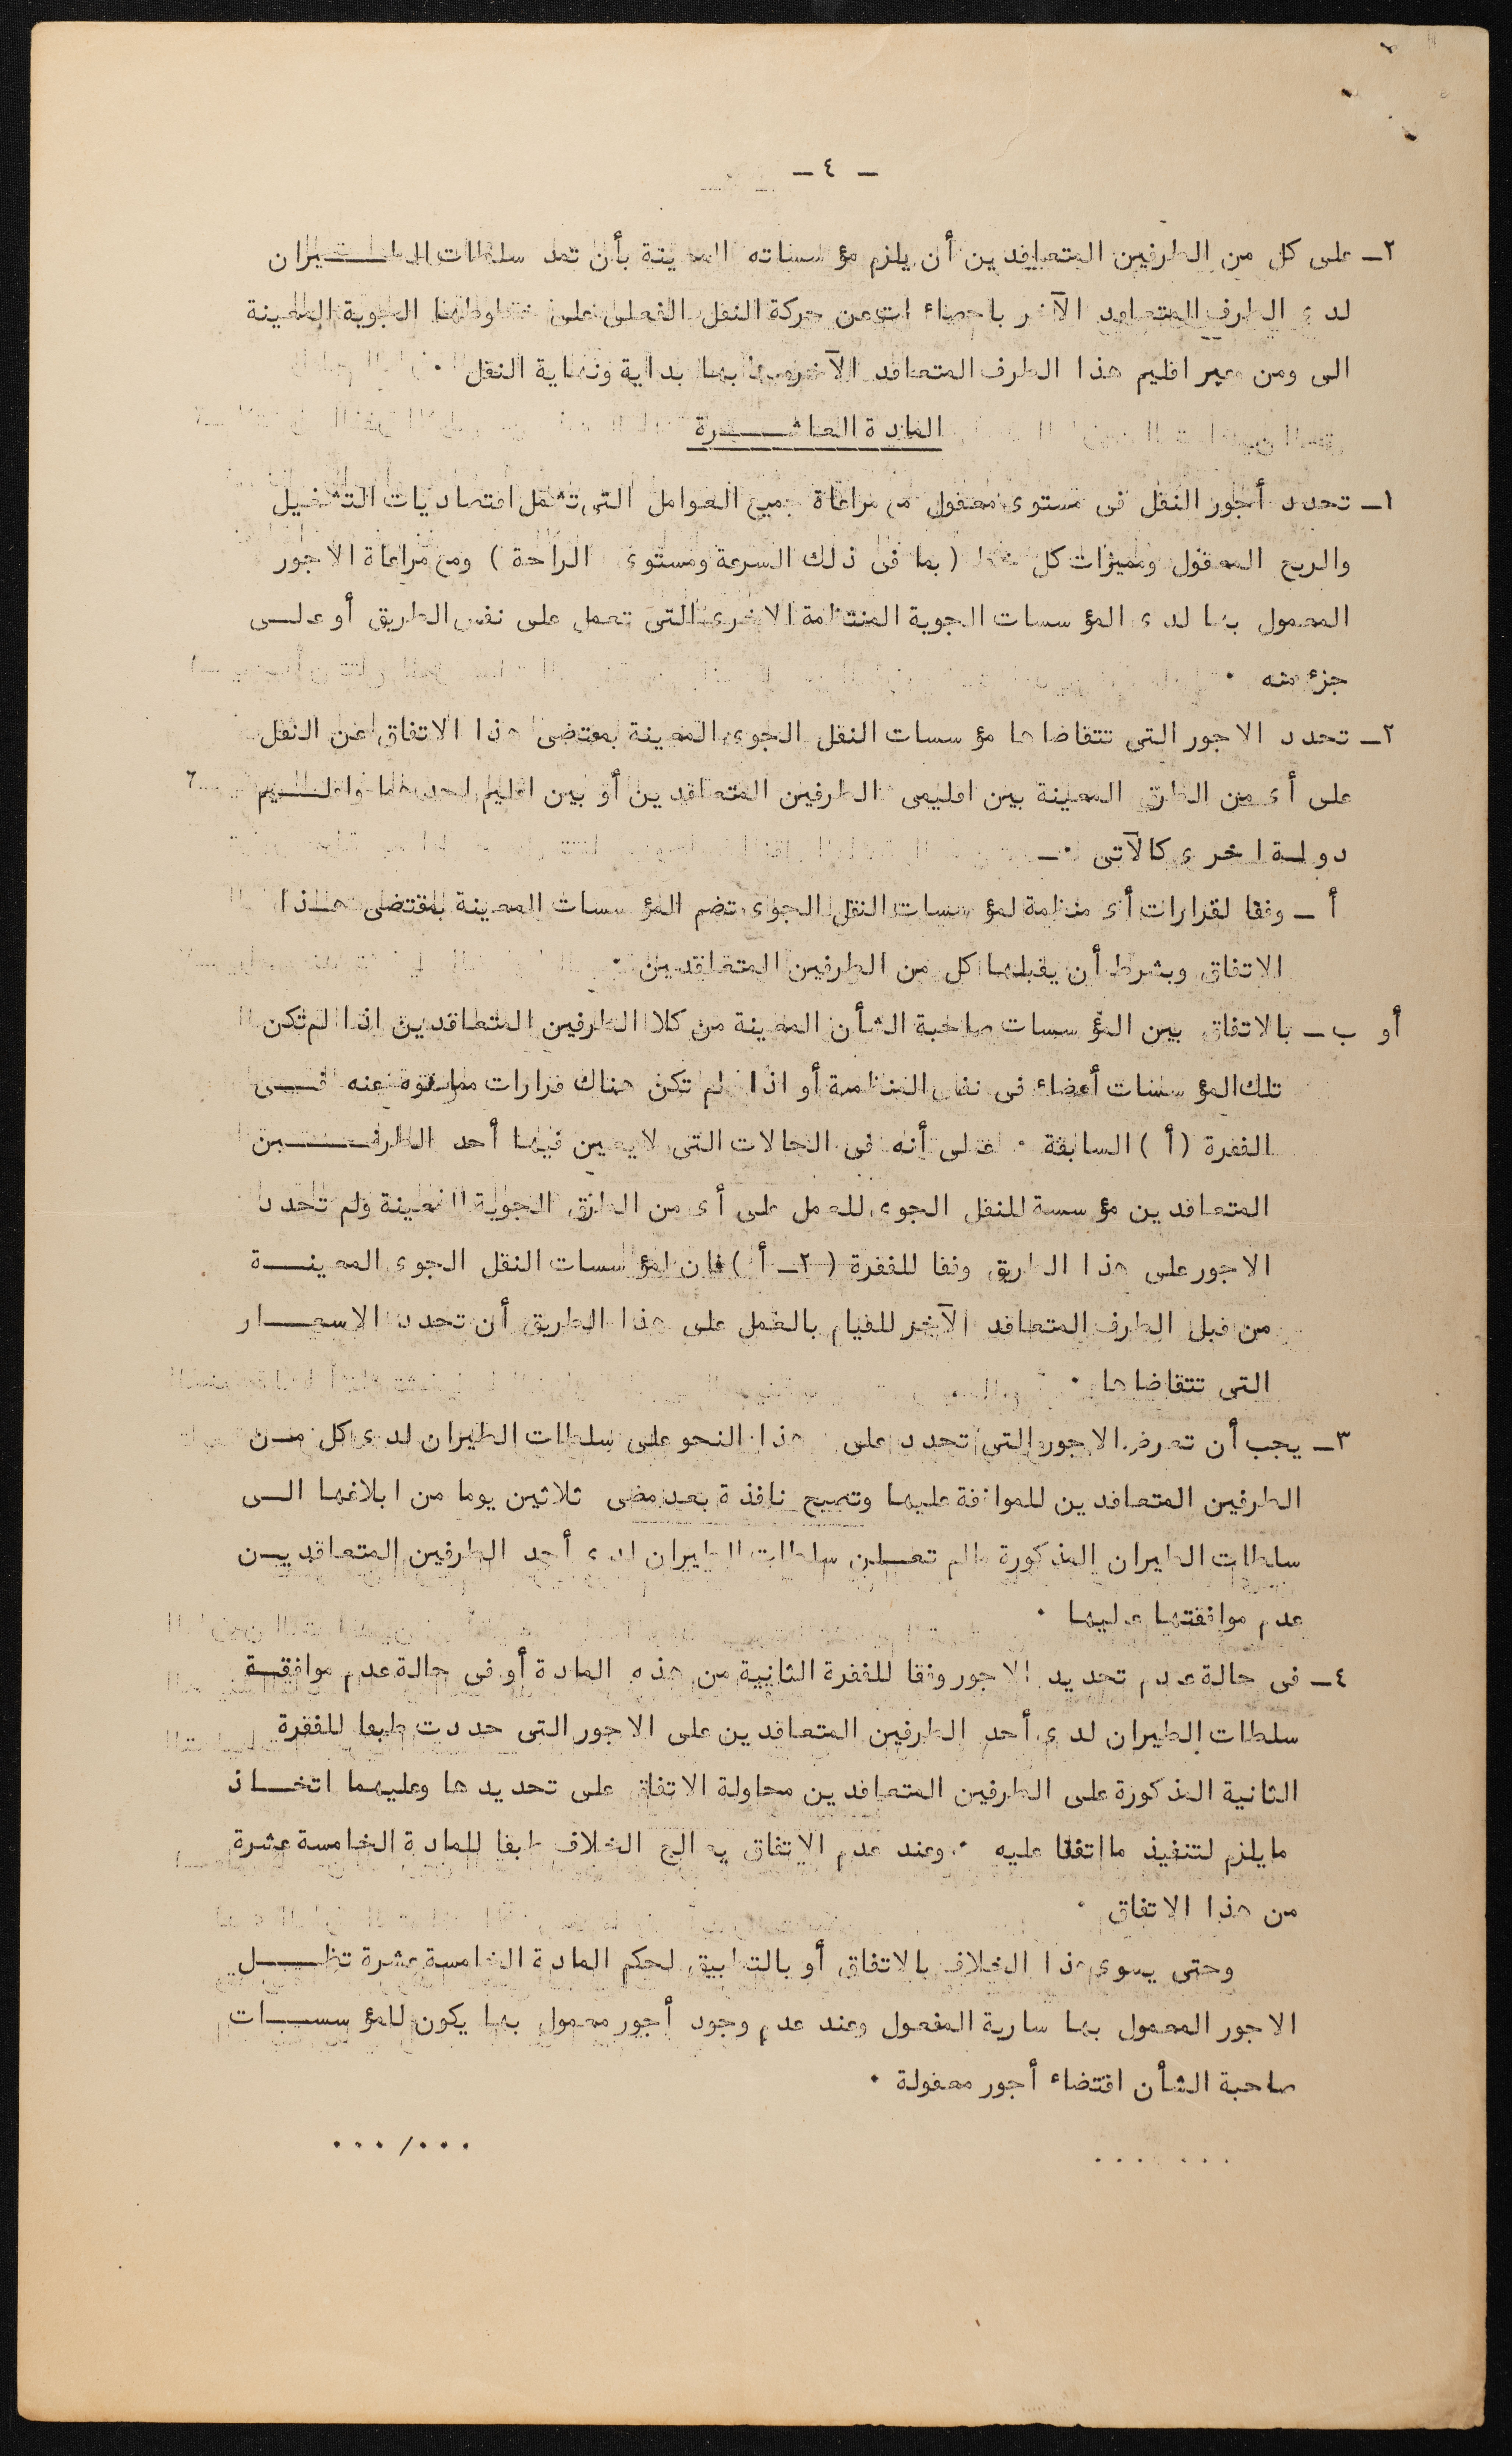 - ٤ -
٢ - على كل من الطرفين المتعاقدين أن يلزم مؤسساته المعينة بأن تمد سلطات الطيران
لدى الطرف المتعاقد الآخر باحصاءات عن حركة النقل الفعلى على خطوطها الجوية المعينة
الى ومن وعبر اقليم هذا الطرف المتعاقد الآخر مبينا بها بداية ونهاية النقل ٠
المادة العاشرة
١ - تحدد أجور النقل فى مستوى معقول مع مراعاة جميع العوامل التى تشمل اقتصاديات التشغيل
والربح المعقول ومميزات كل خط ( بما فى ذلك السرعة ومستوى الراحة ) ومع مراعاة الاجور
المعمول بها لدى المؤسسات الجوية المنتظمة الاخرى التى تعمل على نفس الطريق أو على
جزء منه ٠
٢ - تحدد الاجور التى تتقاضاها مؤسسات النقل الجوى المعينة بمقتضى هذا الاتفاق عن النقل
على أى من الطرق المعينة بين اقليمى الطرفين المتعاقدين أو بين اقليم احدهما واقليم
دولة اخرى كالآتى ٠-
أ - وفقا لقرارات أى منظمة لمؤسسات النقل الجوى تضم المؤسسات المعينة بمقتضى هذا
الاتفاق وبشرط أن يقبلها كل من الطرفين المتعاقدين ٠
أو ب - بالاتفاق بين المؤسسات صاحبة الشأن المعينة من كلا الطرفين المتعاقدين اذا لم تكن
تلك المؤسسات أعضاء فى نفس المنظمة أو اذا لم تكن هناك قرارات مما نوه عنه فى
الفقرة ( أ ) السابقة ٠ على أنه فى الحالات التى لا يعين فيها أحد الطرفين
المتعاقدين مؤسسة للنقل الجوى للعمل على أى من الطرق الجوية المعينة ولم تحدد
الاجور على هذا الطريق وفقا للفقرة ( ٢ - أ ) فان لمؤسسات النقل الجوى المعينة
من قبل الطرف المتعاقد الآخر للقيام بالعمل على هذا الطريق أن تحدد الاسعار
التى تتقاضاها ٠
٣ - يجب أن تعرض الاجور التى تحدد على هذا النحو على سلطات الطيران لدى كل من
الطرفين المتعاقدين للموافقة عليها وتصبح نافذة بعد مضى ثلاثين يوما من ابلاغها الى
سلطات الطيران المذكورة مالم تعلن سلطات الطيران لدى أحد الطرفين المتعاقدين
عدم موافقتها عليها ٠
٤ - فى حالة عدم تحديد الاجور وفقا للفقرة الثانية من هذه المادة أو فى حالة عدم موافقة
سلطات الطيران لدى أحد الطرفين المتعاقدين على الاجور التى حددت طبقا للفقرة
الثانية المذكورة على الطرفين المتعاقدين محاولة الاتفاق على تحديدها وعليهما اتخاذ
مايلزم لتنفيذ ما اتفقا عليه ٠ وعند عدم الاتفاق يعالج الخلاف طبقا للمادة الخامسة عشرة
من هذا الاتفاق ٠
وحتى يسوى هذا الخلاف بالاتفاق أو بالتطبيق لحكم المادة الخامسة عشرة تظل
الاجور المعمول بها سارية المفعول وعند عدم وجود أجور معمول بها يكون للمؤسسات
صاحبة الشأن اقتضاء أجور معقولة ٠
٠٠٠/٠٠٠